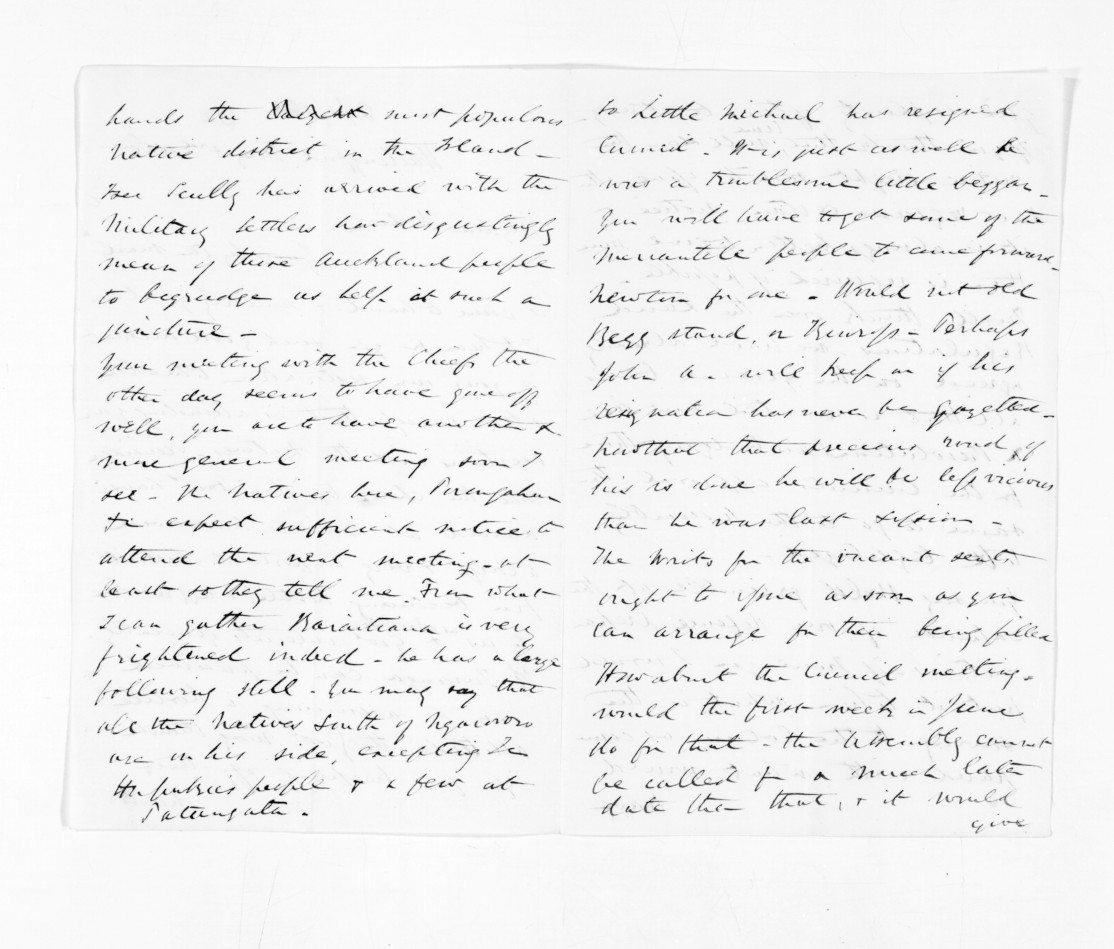 hands the most populous
Native district in the Island -
See Scully has arrived with the
Military Settlers how disgustingly
mean of those Auckland people
to begrudge us help at such a
juncture -
Your meeting with the Chiefs the
other day seems to have gone off
well, you are to have another &
more general meeting soon I
see - The Natives here, Porangahau
&c expect sufficient notice to
attend the next meeting - at
least so they tell me. From what
I can gather Karaitiana is very
frightened indeed - he has a large
following still - You may say that
all the Natives South of Ngaruroro
are on his side, excepting Te
Hapuku's people & a few at
Patangata.
So Little Michael has resigned
Council - It is just as well he
was a troublesome little beggar -
You will have to get some of the
Mercantile people to come forward -
Newton for one - Would not Old
Begg stand, or Kinross - Perhaps
John A - will keep on if his
resignation has never be gazetted -
now that that precious road of
his is done he will be less vicious
than he was last Session -
The Writs for the vacant seats
ought to issue as soon as you
can arrange for their being filled
How about the Council meeting -
would the first week in June
do for that - the Assembly cannot
be called for a much later
date than that, & it would
give